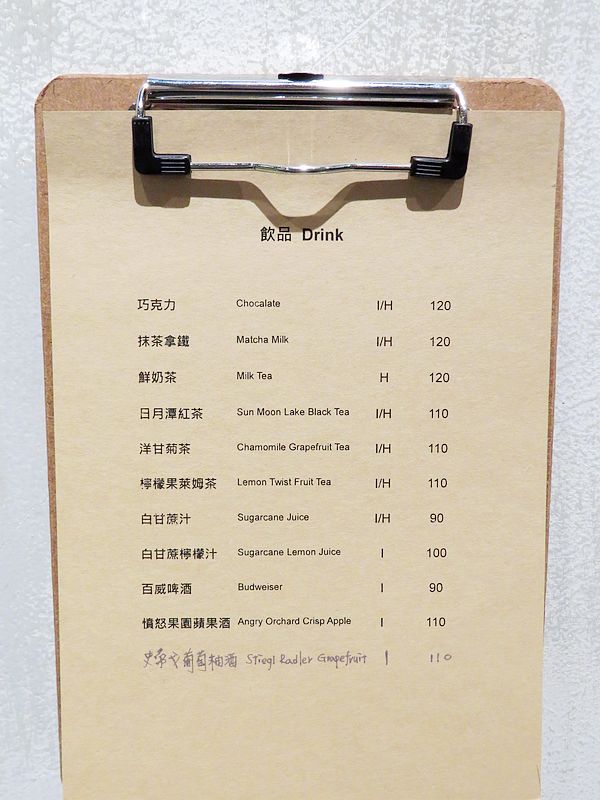 飲品 Drink
巧克力 Chocalate I/H 120
抹茶拿鐵 Matcha Milk I/H 120
鮮奶茶 Milk Tea H 120
日月潭紅茶 Sun Moon Lake Black Tea I/H 110
洋甘菊茶 Chamomile Grapefruit Tea I/H 110
檸檬果萊姆茶 Lemon Twist Fruit Tea I/H 110
白甘蔗汁 Sugarcane Juice I/H 90
白甘蔗檸檬汁 Sugarcane Lemon Juice I 100
百威啤酒 Budweiser I 90
憤怒果園蘋果酒 Angry Orchard Crisp Apple I 110
葡萄柚酒 Stiegl Radler Grapefruit I 110